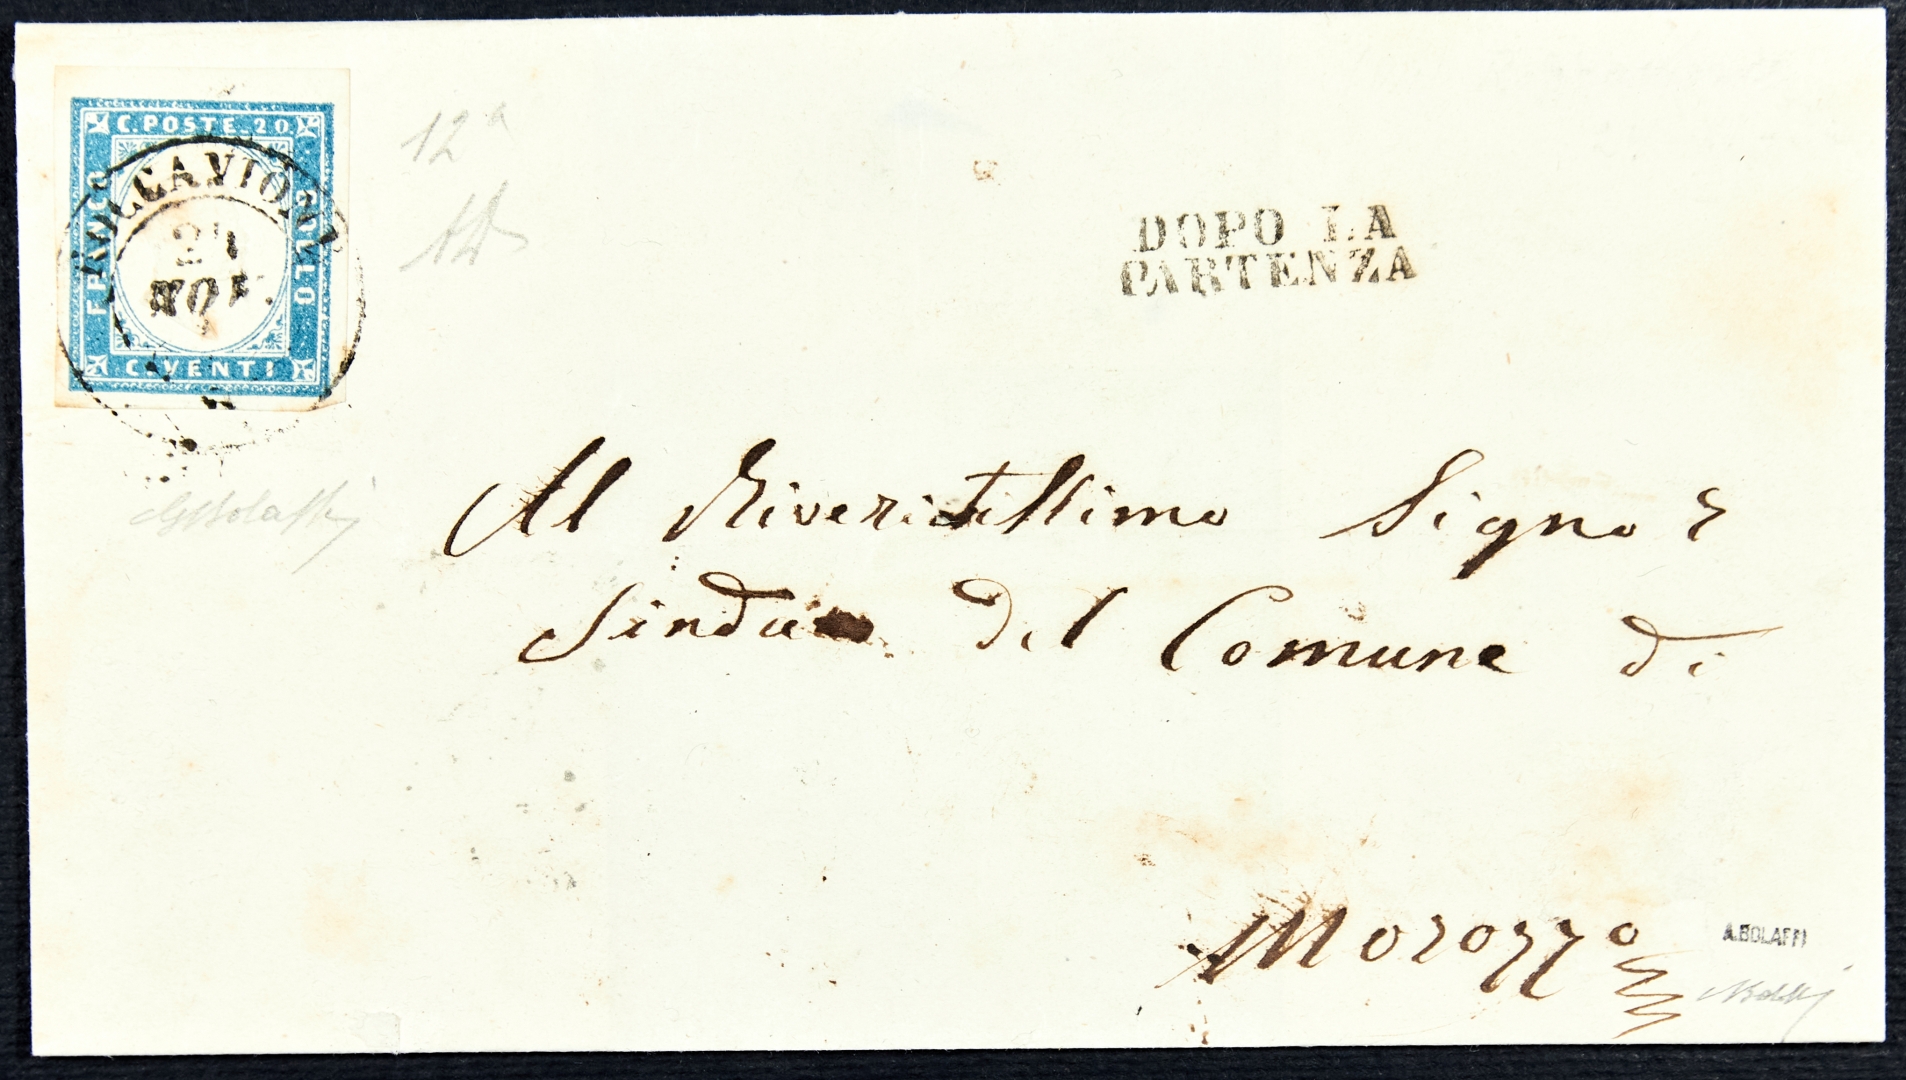 C. POSTE. 20.
FRANCO
BOLLO
C. VENTI
ROCCAVIONE
24
NOV.
12ª
AD
DOPO LA
PARTENZA
Al Riveritissimo Signor
Sindaco del Comune di
Morozzo
GBolaffi
A.BOLAFFI
ABolaffi